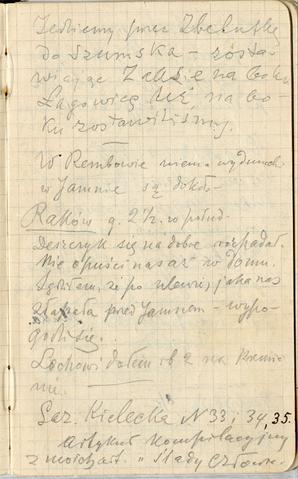 Jedziemy przez Zbelutkę
do Szumska – zosta-
wiając Zalesie na boku
Łagowicę też na bo-
ku zostawiliśmy.
W Rembowie niema wydmuch
w Jamnie są dokoł-
Raków g. 2½ w połud.
Deszczyk się na dobre rozpadał.
Nie opuści nas aż w domu.
Sądziłem, że po ulewie, jaka nas
złapała przed Jamnem – wypo-
godzi się.
2 na
Gaz. Kielecka N 33; 34, 35.
Artykuł kompilacyjny
z moich art. „Ślady człowie-